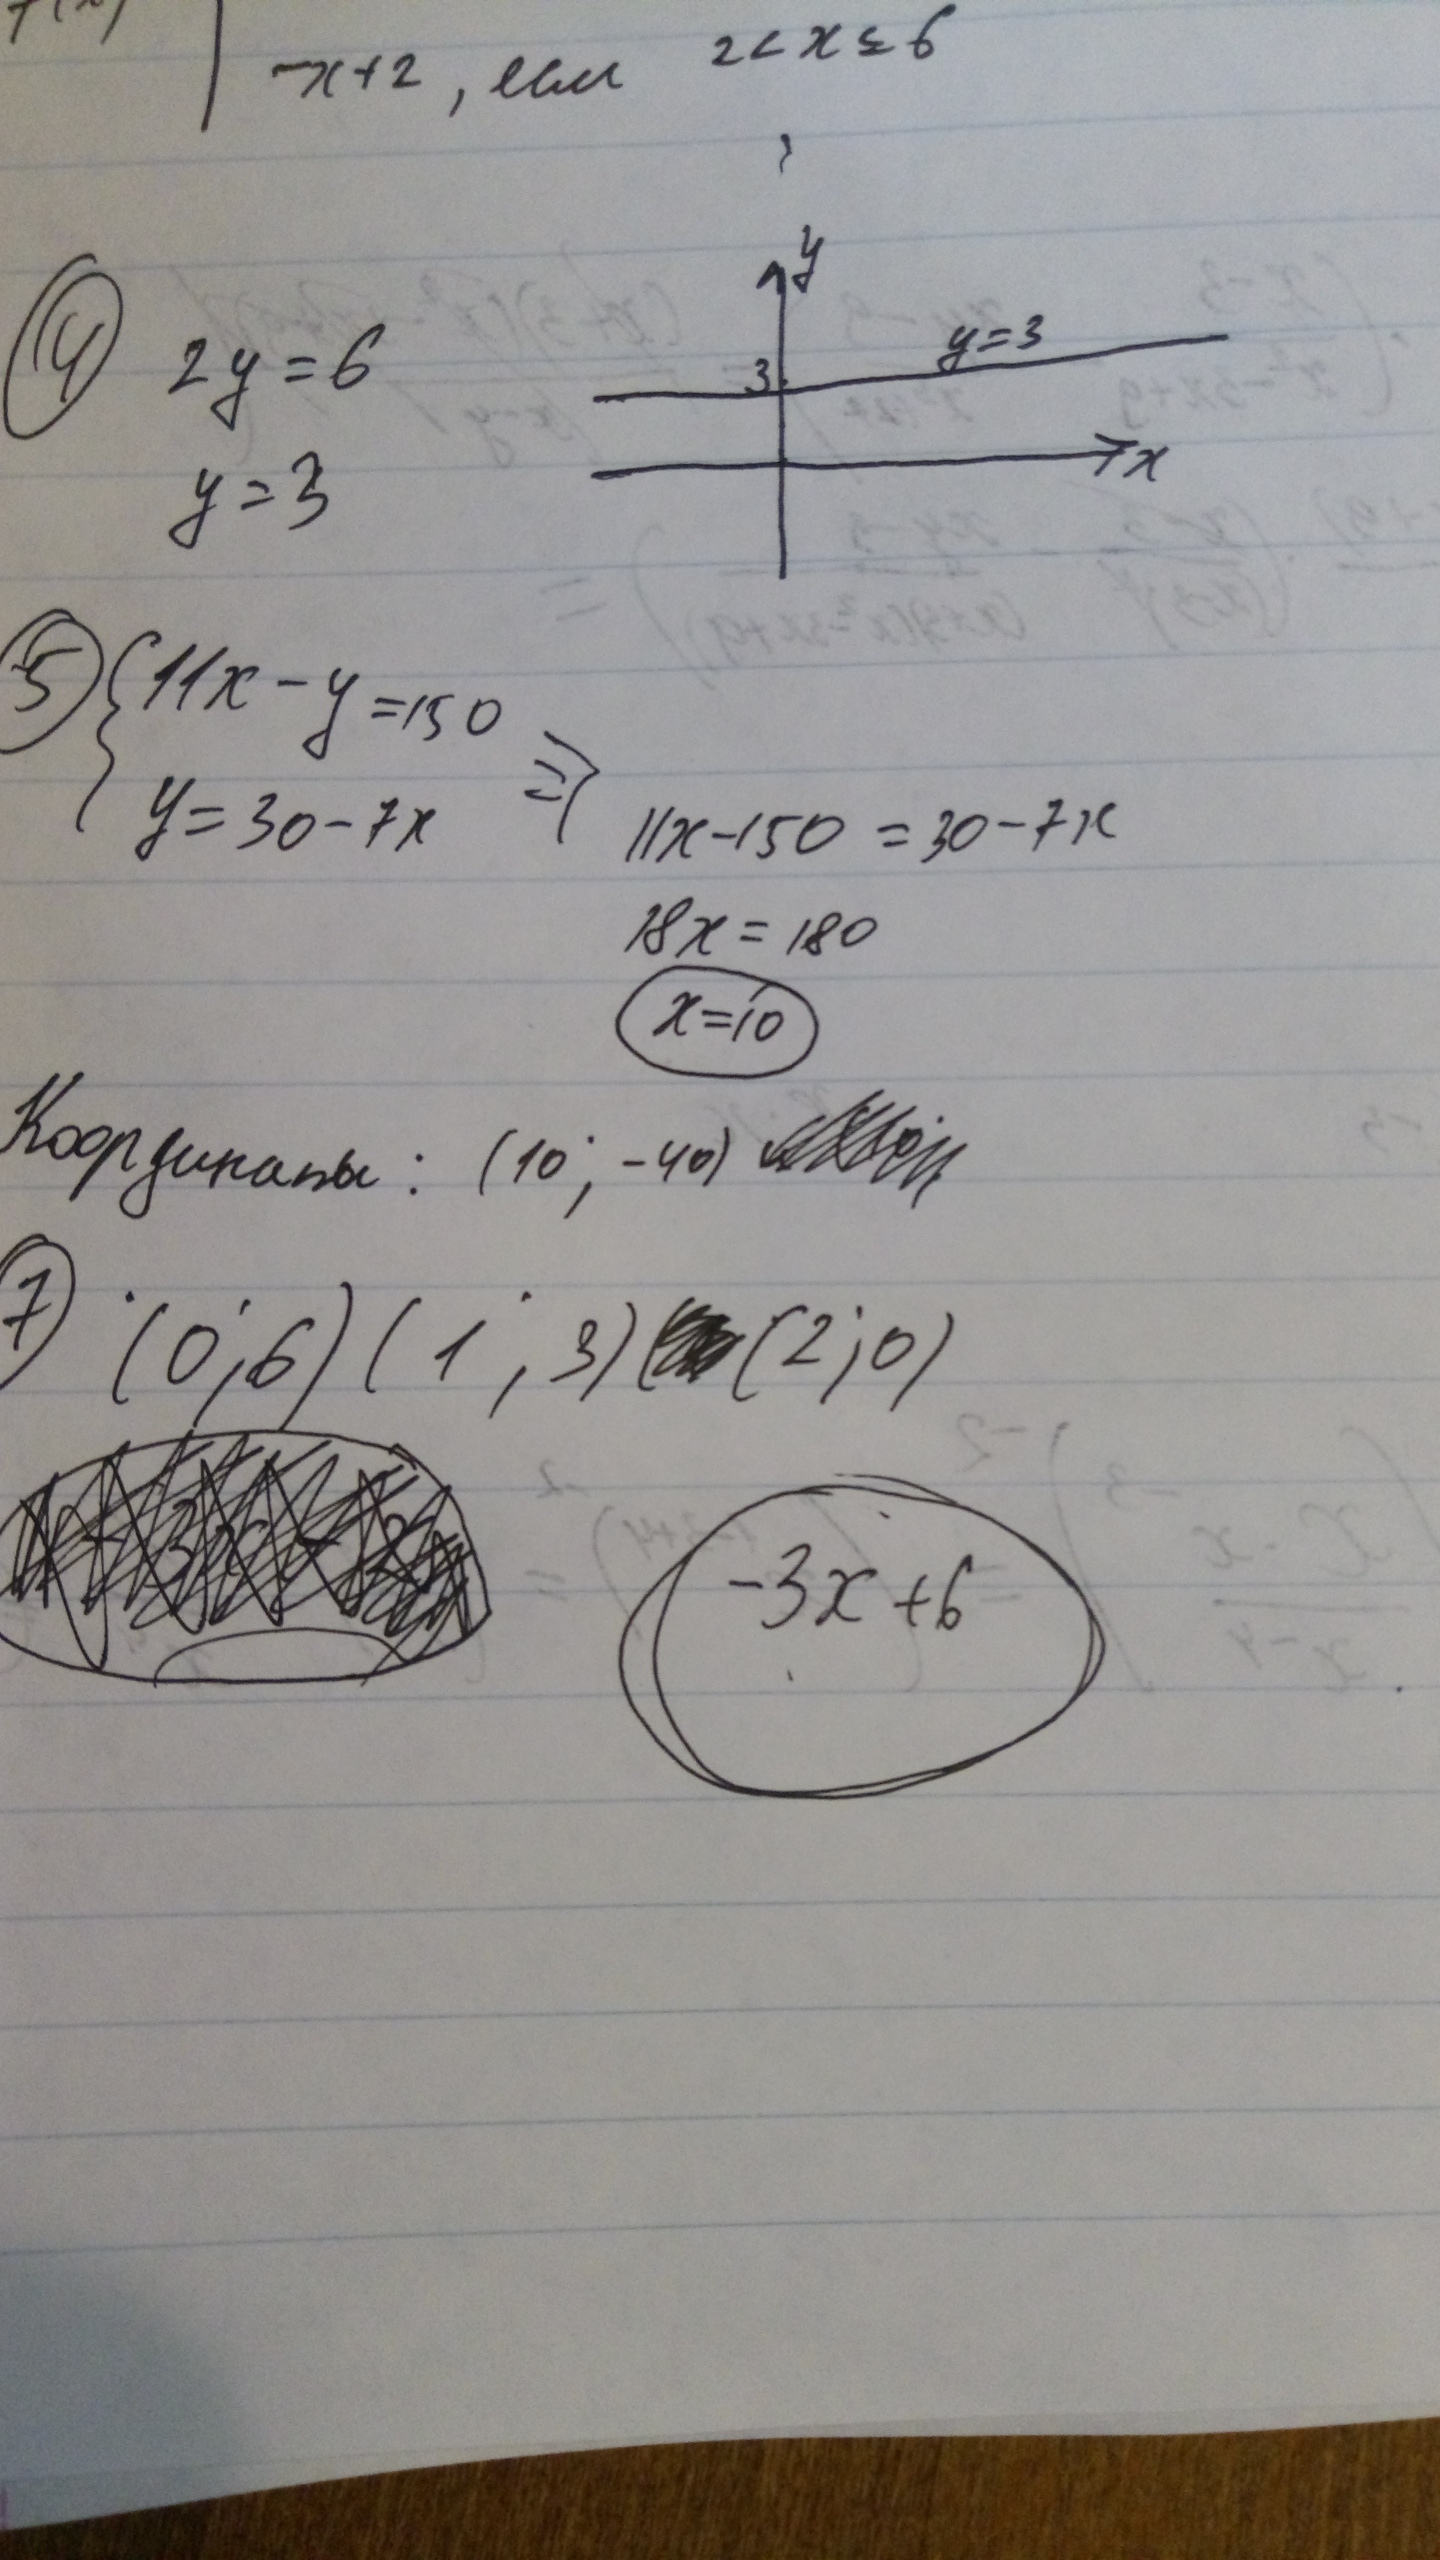 f(x)
-x+2, если 2<x≤6
④ 2y=6
y=3
y
3
y=3
x
⑤ {11x-y=150
y=30-7x ⇒
11x-150=30-7x
18x=180
x=10
Координаты: (10;-40)
⑦ (0;6)(1;3)(2;0)
-3x+6